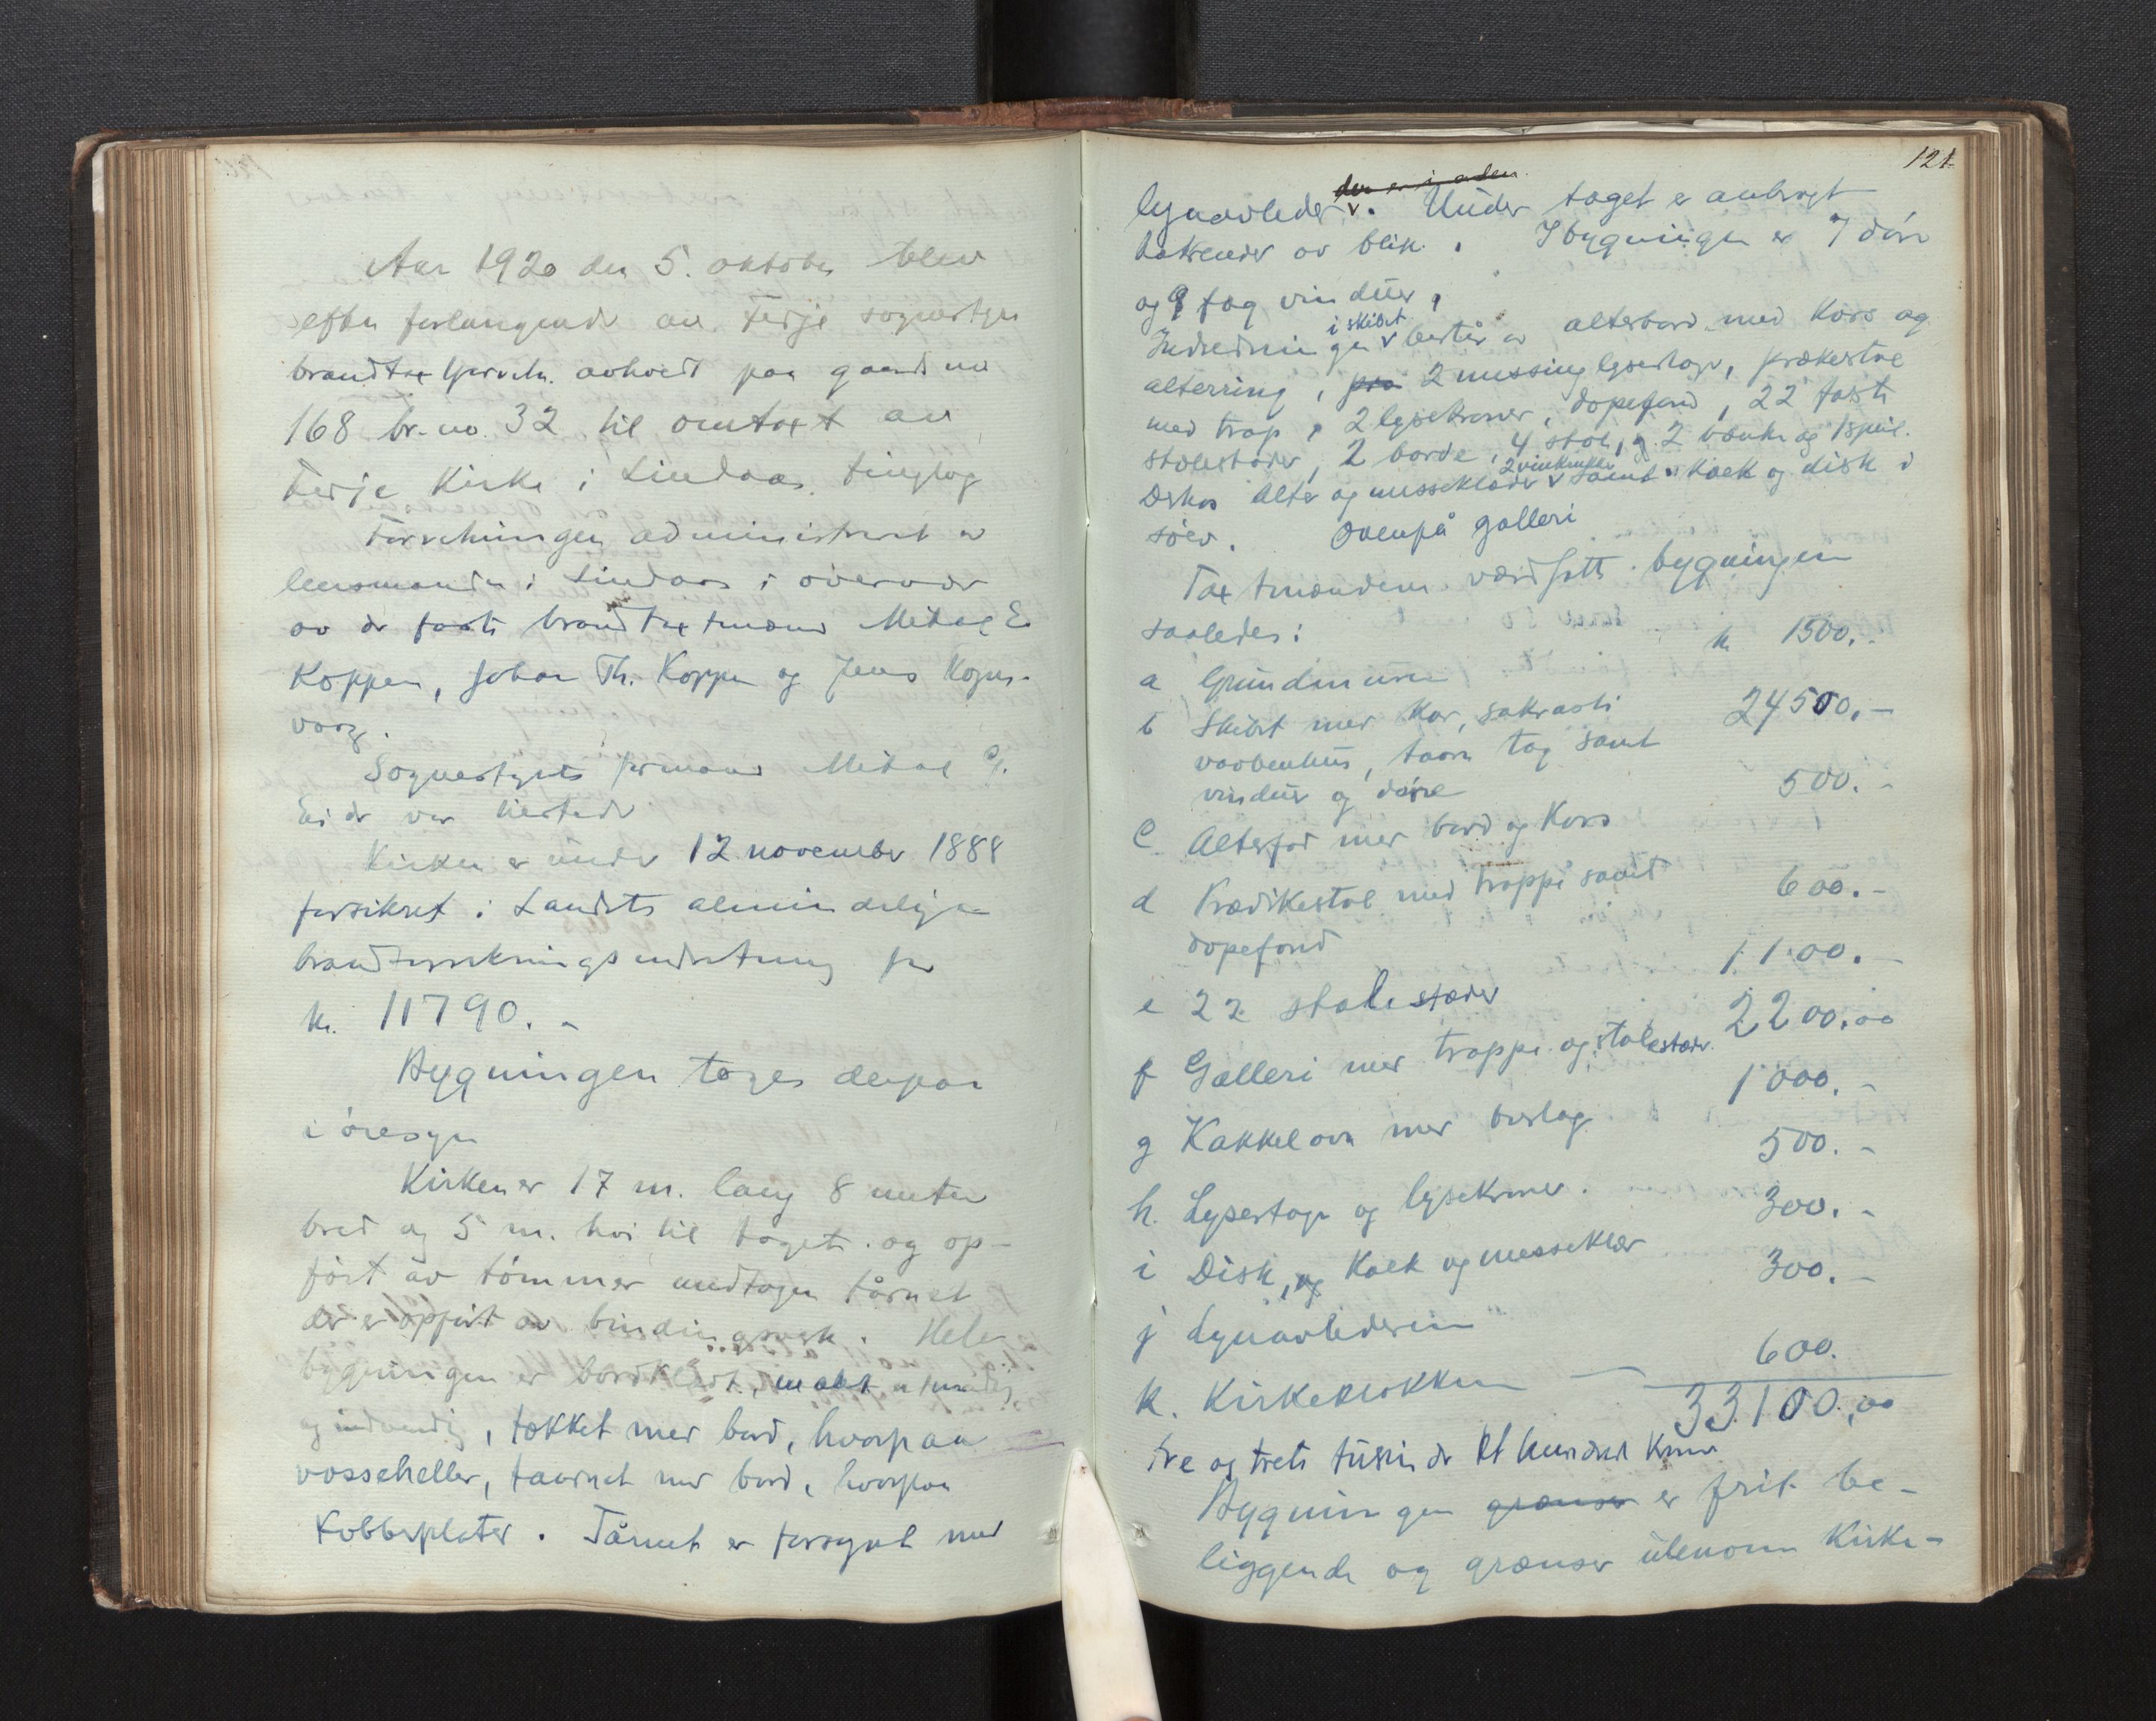 Aar 1920 den 5. oktober blev
efter forlangende av Ferje sognestyre
brandtaxtforretn. avholdt paa gaards no
168 br. no. 32 til omtaxt av
Ferje Kirke i Lindaas tinglag
Forretningen administreret av
lensmanden i Lindaas i overvær
av de faste brandtaxtmænd Mikal E.
Koppen, Johan Th. Koppen og Jens
Sognestyrets formand Mikal
Eide var tilstede
Kirken er under 12 november 1888
forsikret i Landets almindelige
brandforsikringsindretning for
kr. 11790. -
Bygningen toges derpaa
i øiesyn
Kirken er 17 m. lang 8 meter
bred og 5 m. høi til taget og op-
ført av tømmer undtagen tårnet
der er opført av bindingsverk. Hele
bygningen er bordklædt, malt utvendig
og indvendig, tækket med bord, hvorpaa
vosseheller, taarnet med bord, hvorpaa
Kobberplater. Tårnet er forsynet med
121.
der er i orden
lynavleder. Under taget er anbragt
takrender av blik. I bygningen er 7 døre
og 9 fag vinduer,
i skibet
Indredningen består av alterbord med Kors og
alterring, 2 messing lysestager, prækestol
med trap, 2 lysekroner, døpefond, 22 faste
stolestader, 2 borde, 4 stole, og 2 bænke og 1 speil.
2 vinkrukker
Desuden Alter og messeklæder samt Kalk og disk i
sølv. Ovenpå galleri
Taxtmændene værdsatte bygningen
saaledes:
a Grundmuren kr 1500. -
b Skibet med Kor, sakristi
vaabenhus, taarn tag samt
vinduer og døre 24500. -
c Alterfod med bord og Kors 500. -
d Prædikestol med trappe samt
døpefond 600. -
e 22 stolestæder 1100. -
f Galleri med trappe og stolestæder. 2200.00
g Kakkelovn med beslag 1000. -
h. Lysestager og lysekroner. 500. -
i Disk, og Kalk og messeklær 300. -
j Lynavlederen 300. -
k. Kirkeklokken — 600.
33100,00
Tre og treti tusinde et hundrede Kroner
Bygningen grænser er frit be-
liggende og grænser utenom Kirke-